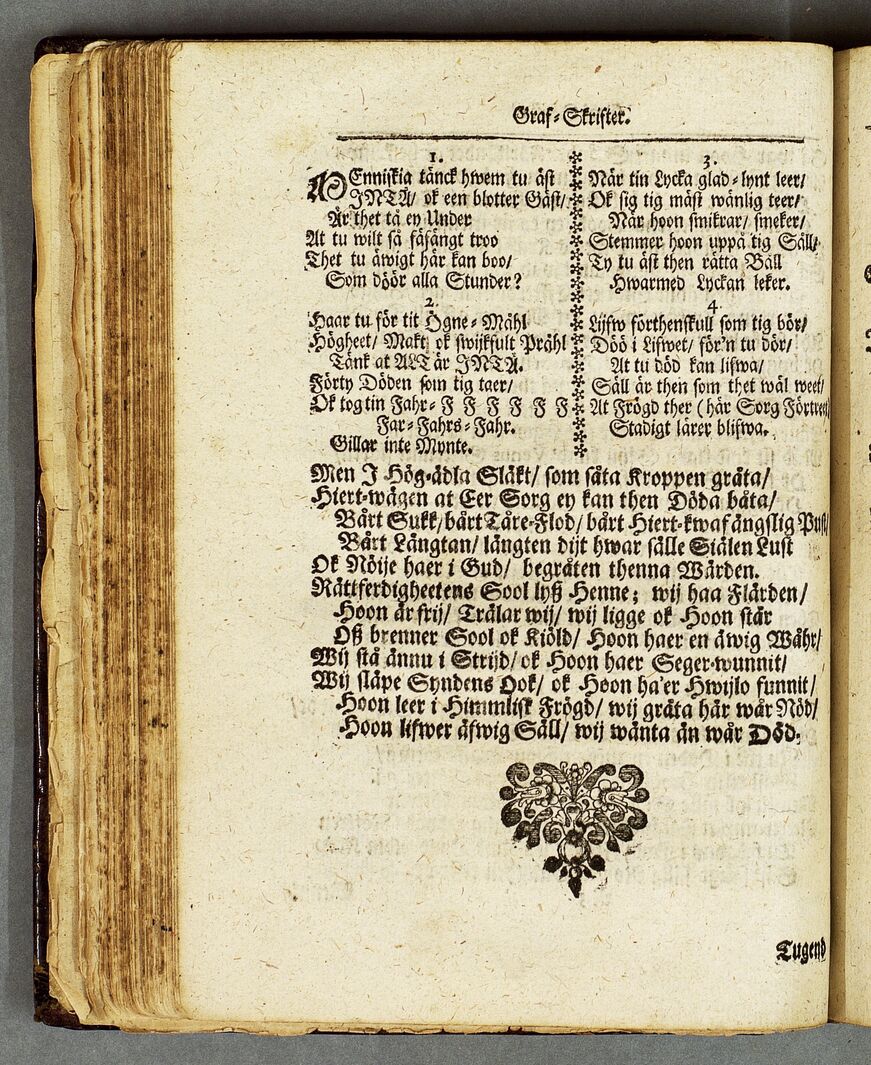 Graf-Skrifter.
1.
MEnniskia tänck hwem tu äst
INTÅ/ ok een blotter Gäst/
Är thet tå ey Under
At tu wilt så fåfängt troo
Thet tu äwigt här kan boo/
Som döör alla Stunder?
2.
Haar tu för tit Ögne-Mähl
Högheet/ Makt ok swijkfult Prähl
Tänk at ALT är INTÅ.
Förty Döden som tig taer/
Ok tog tin Fahr-F F F F F F
Far-Fahrs-Fahr.
Gillar inte Mynte.
3.
När tin Lycka glad-lynt leer/
Ok sig tig mäst wänlig teer/
När hoon smikrar/ smeker/
Stemmer hoon uppå tig Säll/
Ty tu äst then rätta Båll
Hwarmed Lyckan leker.
4.
Lijfw förthenskull som tig bör/
Döö i Lifwet/ för'n tu dör/
At tu död kan lifwa/
Säll är then som thet wäl weet/
At Frögd ther (här Sorg Förtreet)
Stadigt lärer blifwa.
Men J Hög-ädla Släkt/ som såta Kroppen gråta/
Hiert-wägen at Eer Sorg ey kan then Döda båta/
Bårt Sukk/ bårt Tåre-Flod/ bårt Hiert-kwaf ängslig Pust/
Bårt Längtan/ längten dijt hwar sälle Siälen Lust
Ok Nöije haer i Gud/ begråten thenna Wärden.
Rättferdigheetens Sool lyß Henne; wij haa Flärden/
Hoon är frij/ Trälar wij/ wij ligge ok Hoon står
Oß brenner Sool ok Kiöld/ Hoon haer en äwig Wåhr/
Wij stå ännu i Strijd/ ok Hoon haer Seger-wunnit/
Wij släpe Syndens Ook/ ok Hoon ha'er Hwijlo funnit/
Hoon leer i Himmlisk Frögd/ wij gråta här wår Nöd/
Hoon lifwer äfwig Säll/ wij wänta än wår Död.
Tugend